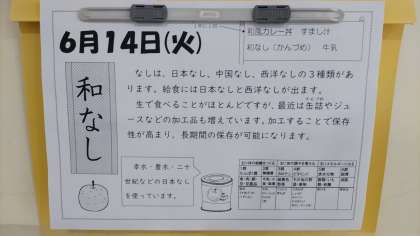 6月14日(火)
和風カレー丼　すましけ
和なし（かんづめ）　牛乳
和なし
なしは、日本なし、中国なし、西洋なしの３種類があ
ります。給食には日本なしと西洋なしが出ます。
生で食べることがほとんどですが、最近は缶詰やジュ
ースなどの加工品も増えています。加工することで保存
性が高まり、長期間の保存が可能になります。
幸水・豊水・二十
世紀などの日本なし
を使っています。